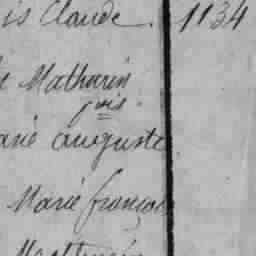 is Claude. 1134
t Mathurin
pois.
arie auguste
Marie françois
Mathurin